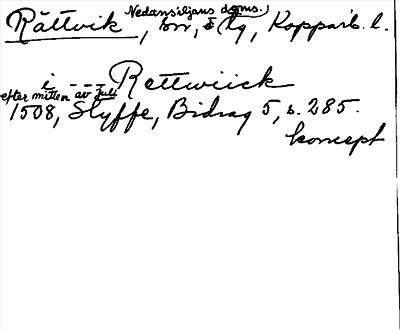 Nedansiljans doms.
Rättvik, sn, Kopparb. l.
i --- Rettwiick
efter mitten av juli
1508, Styffe, Bidrag 5, s. 285.
koncept